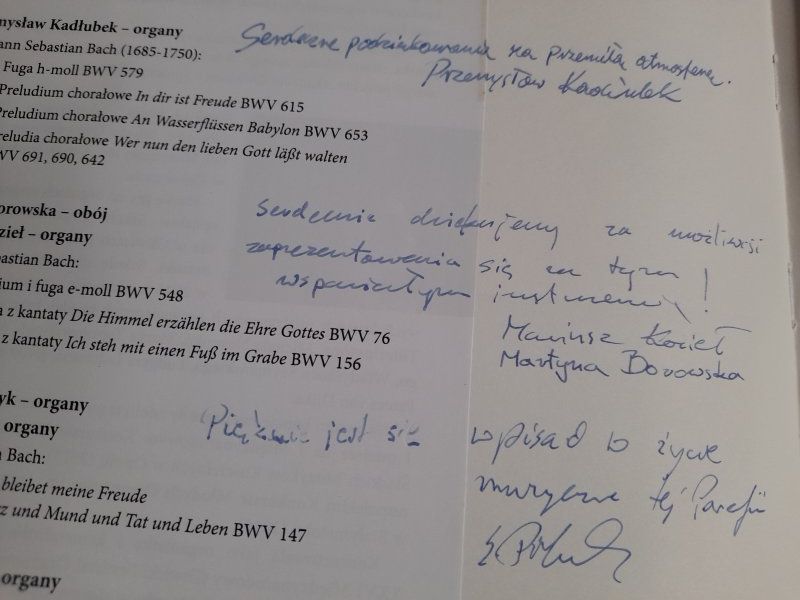 mysław Kadłubek – organy
ann Sebastian Bach (1685-1750):
Fuga h-moll BWV 579
Preludium chorałowe In dir ist Freude BWV 615
Preludium chorałowe An Wasserflüssen Babylon BWV 653
reludia chorałowe Wer nun den lieben Gott läßt walten
WV 691, 690, 642
orowska – obój
zieł – organy
bastian Bach:
ium i fuga e-moll BWV 548
a z kantaty Die Himmel erzählen die Ehre Gottes BWV 76
z kantaty Ich steh mit einen Fuß im Grabe BWV 156
yk – organy
organy
n Bach:
bleibet meine Freude
z und Mund und Tat und Leben BWV 147
organy
Serdeczne podziękowania za przemiłą atmosferę.
Przemysław Kadłubek
Serdecznie dziękujemy za możliwość
zaprezentowania się na tym
wspaniałym instrumencie!
Mariusz Kozieł
Martyna Borowska
Pięknie jest się wpisać w życie
muzyczne tej Parafii